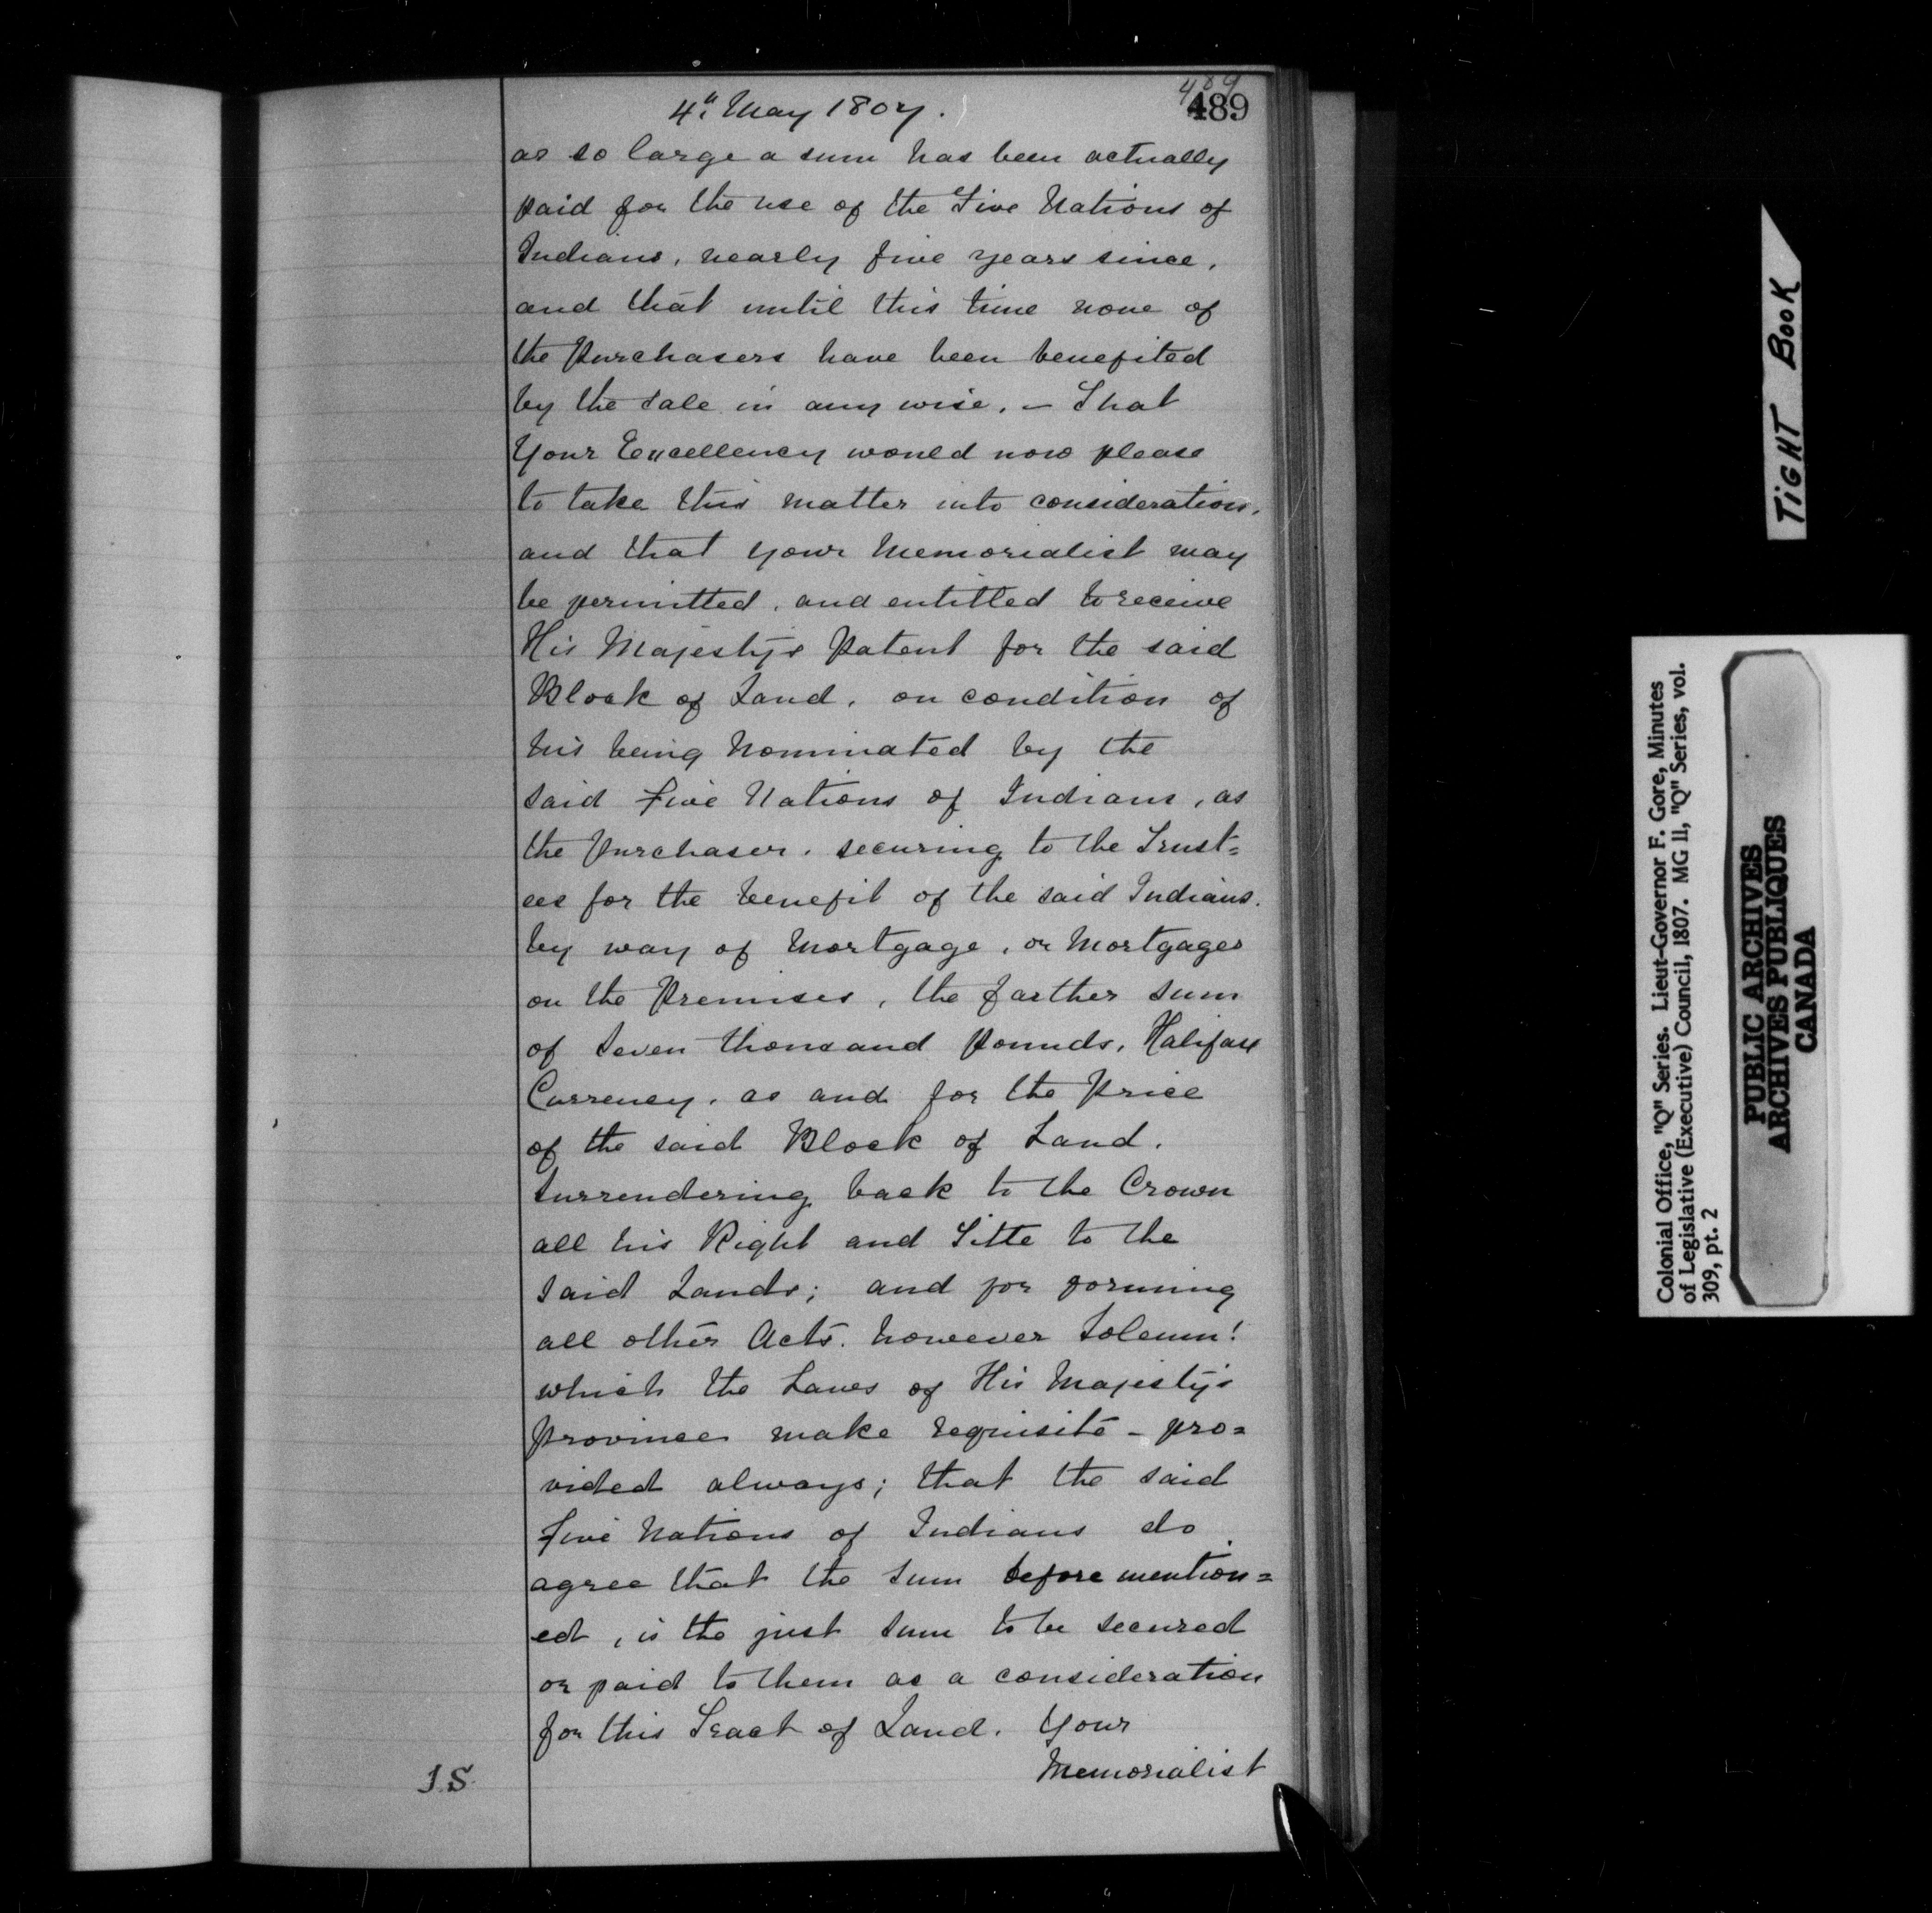 489
4th May 1807.
489
as so large a sum has been actually
paid for the use of the Five Nations of
Indians, nearly five years since,
and that until this time none of
the Purchasers have been benefited
by the sale in any wise. - That
Your Excellency would now please
to take this matter into consideration,
and that your Memorialist may
be permitted, and entitled to receive
His Majesty's Patent for the said
Block of Land, on condition of
his being Nominated by the
said Five Nations of Indians, as
the Purchaser, securing to the Trust=
ees for the benefit of the said Indians.
by way of Mortgage, or Mortgages
on the Premises, the farther sum
of Seven thousand Pounds, Halifax
Currency, as and for the Price
of the said Block of Land.
Surrendering back to the Crown
all his Right and Title to the
said Lands; and for forming
all other Acts. however Solemn!
which the Laws of His Majesty's
Province make requisite - pro=
vided always; that the said
Five Nations of Indians do
agree that the sum before mention=
ed, is the just sum to be secured
or paid to them as a consideration
for this Tract of Land. Your
Memorialist
J.S
TIGHT BOOK
Colonial Office, "Q" Series. Lieut-Governor F. Gore, Minutes
of Legislative (Executive) Council, 1807. MG 11, "Q" Series, vol.
309, pt. 2
PUBLIC ARCHIVES
ARCHIVES PUBLIQUES
CANADA